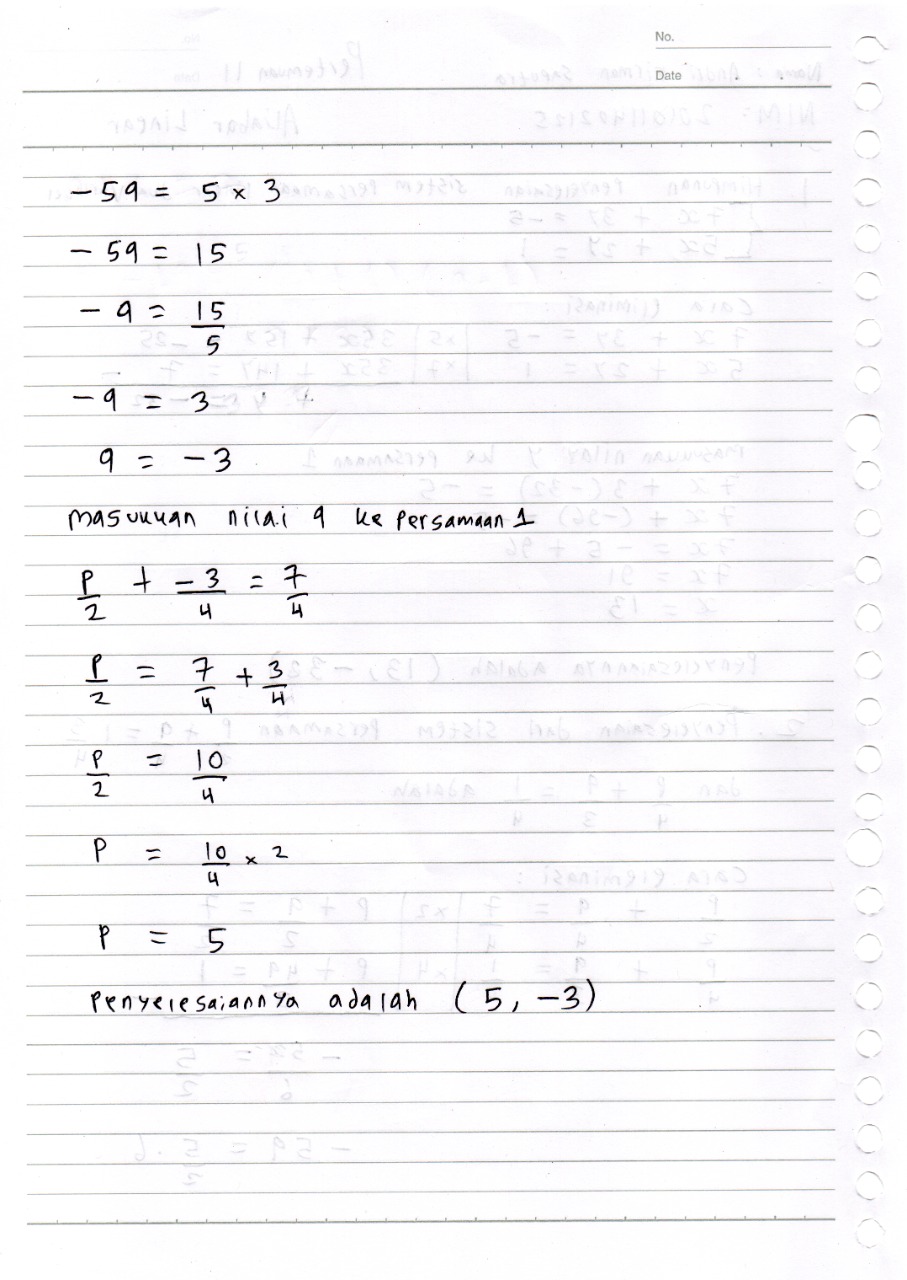 No.
Date
- 5q = 5 x 3
- 5q = 15
- q = 15/5
- q = 3
q = -3
masukkan nilai q ke persamaan 1
p/2 + -3/4 = 7/4
p/2 = 7/4 + 3/4
p/2 = 10/4
p = 10/4 x 2
p = 5
Penyelesaiannya adalah (5, -3)